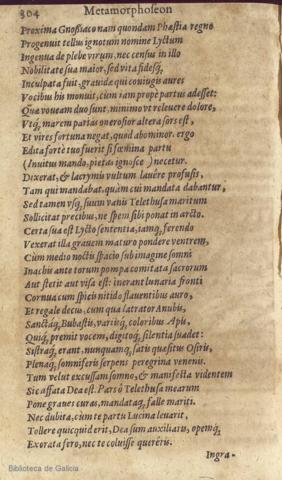 304 Metamorphoseon
Proxima Gnosiaco nam quondam Phæstia regno
Progenuit tellus ignotum nomine Lyctum
Ingenua de plebe virum, nec census in illo
Nobilitate sua maior, sed vita fidesq́,
Inculpata fuit, grauidæ qui coniugis aures
Vocibus his monuit, cum iam prope partus adesset:
Quæ voueam duo sunt, minimo vt releuere dolore,
Vtq́, marem parias onerosior altera sors est,
Et vires fortuna negat, quòd abominor. ergo
Edita fortè tuo fuerit si fœmina partu
(Inuitus mando, pietas ignosce) necetur.
Dixerat, & lacrymis vultum lauêre profusis,
Tam qui mandabat, quàm cui mandata dabantur,
Sed tamen vsq́, suum vanis Telethusa maritum
Sollicitat precibus, ne spem sibi ponat in arcto.
Certa sua est Lycto sententia, iamq́, ferendo
Vexerat illa grauem maturo pondere ventrem,
Cùm medio noctis spacio sub imagine somni
Inachis ante torum pompa comitata sacrorum
Aut stetit aut visa est: inerant lunaria fronti
Cornua cum spicis nitido flauentibus auro,
Et regale decus, cum qua latrator Anubis,
Sanctáq́, Bubastis, variusq́, coloribus Apis,
Quiq́, premit vocem, digitoq́, silentia suadet:
Sistráq́, erant, nunquamq́, satis quæsitus Osiris,
Plenáq́, somniferis serpens peregrina venenis.
Tum velut excussam somno, & manifesta videntem
Sic affata Dea est. Pars ô Telethusa mearum
Pone graues curas, mandatáq́, falle mariti.
Nec dubita, cùm te partu Lucina leuarit,
Tollere quicquid erit, Dea sum auxiliaris, opemq́,
Exorata fero, nec te coluisse quereris.
Ingra-
Biblioteca de Galicia